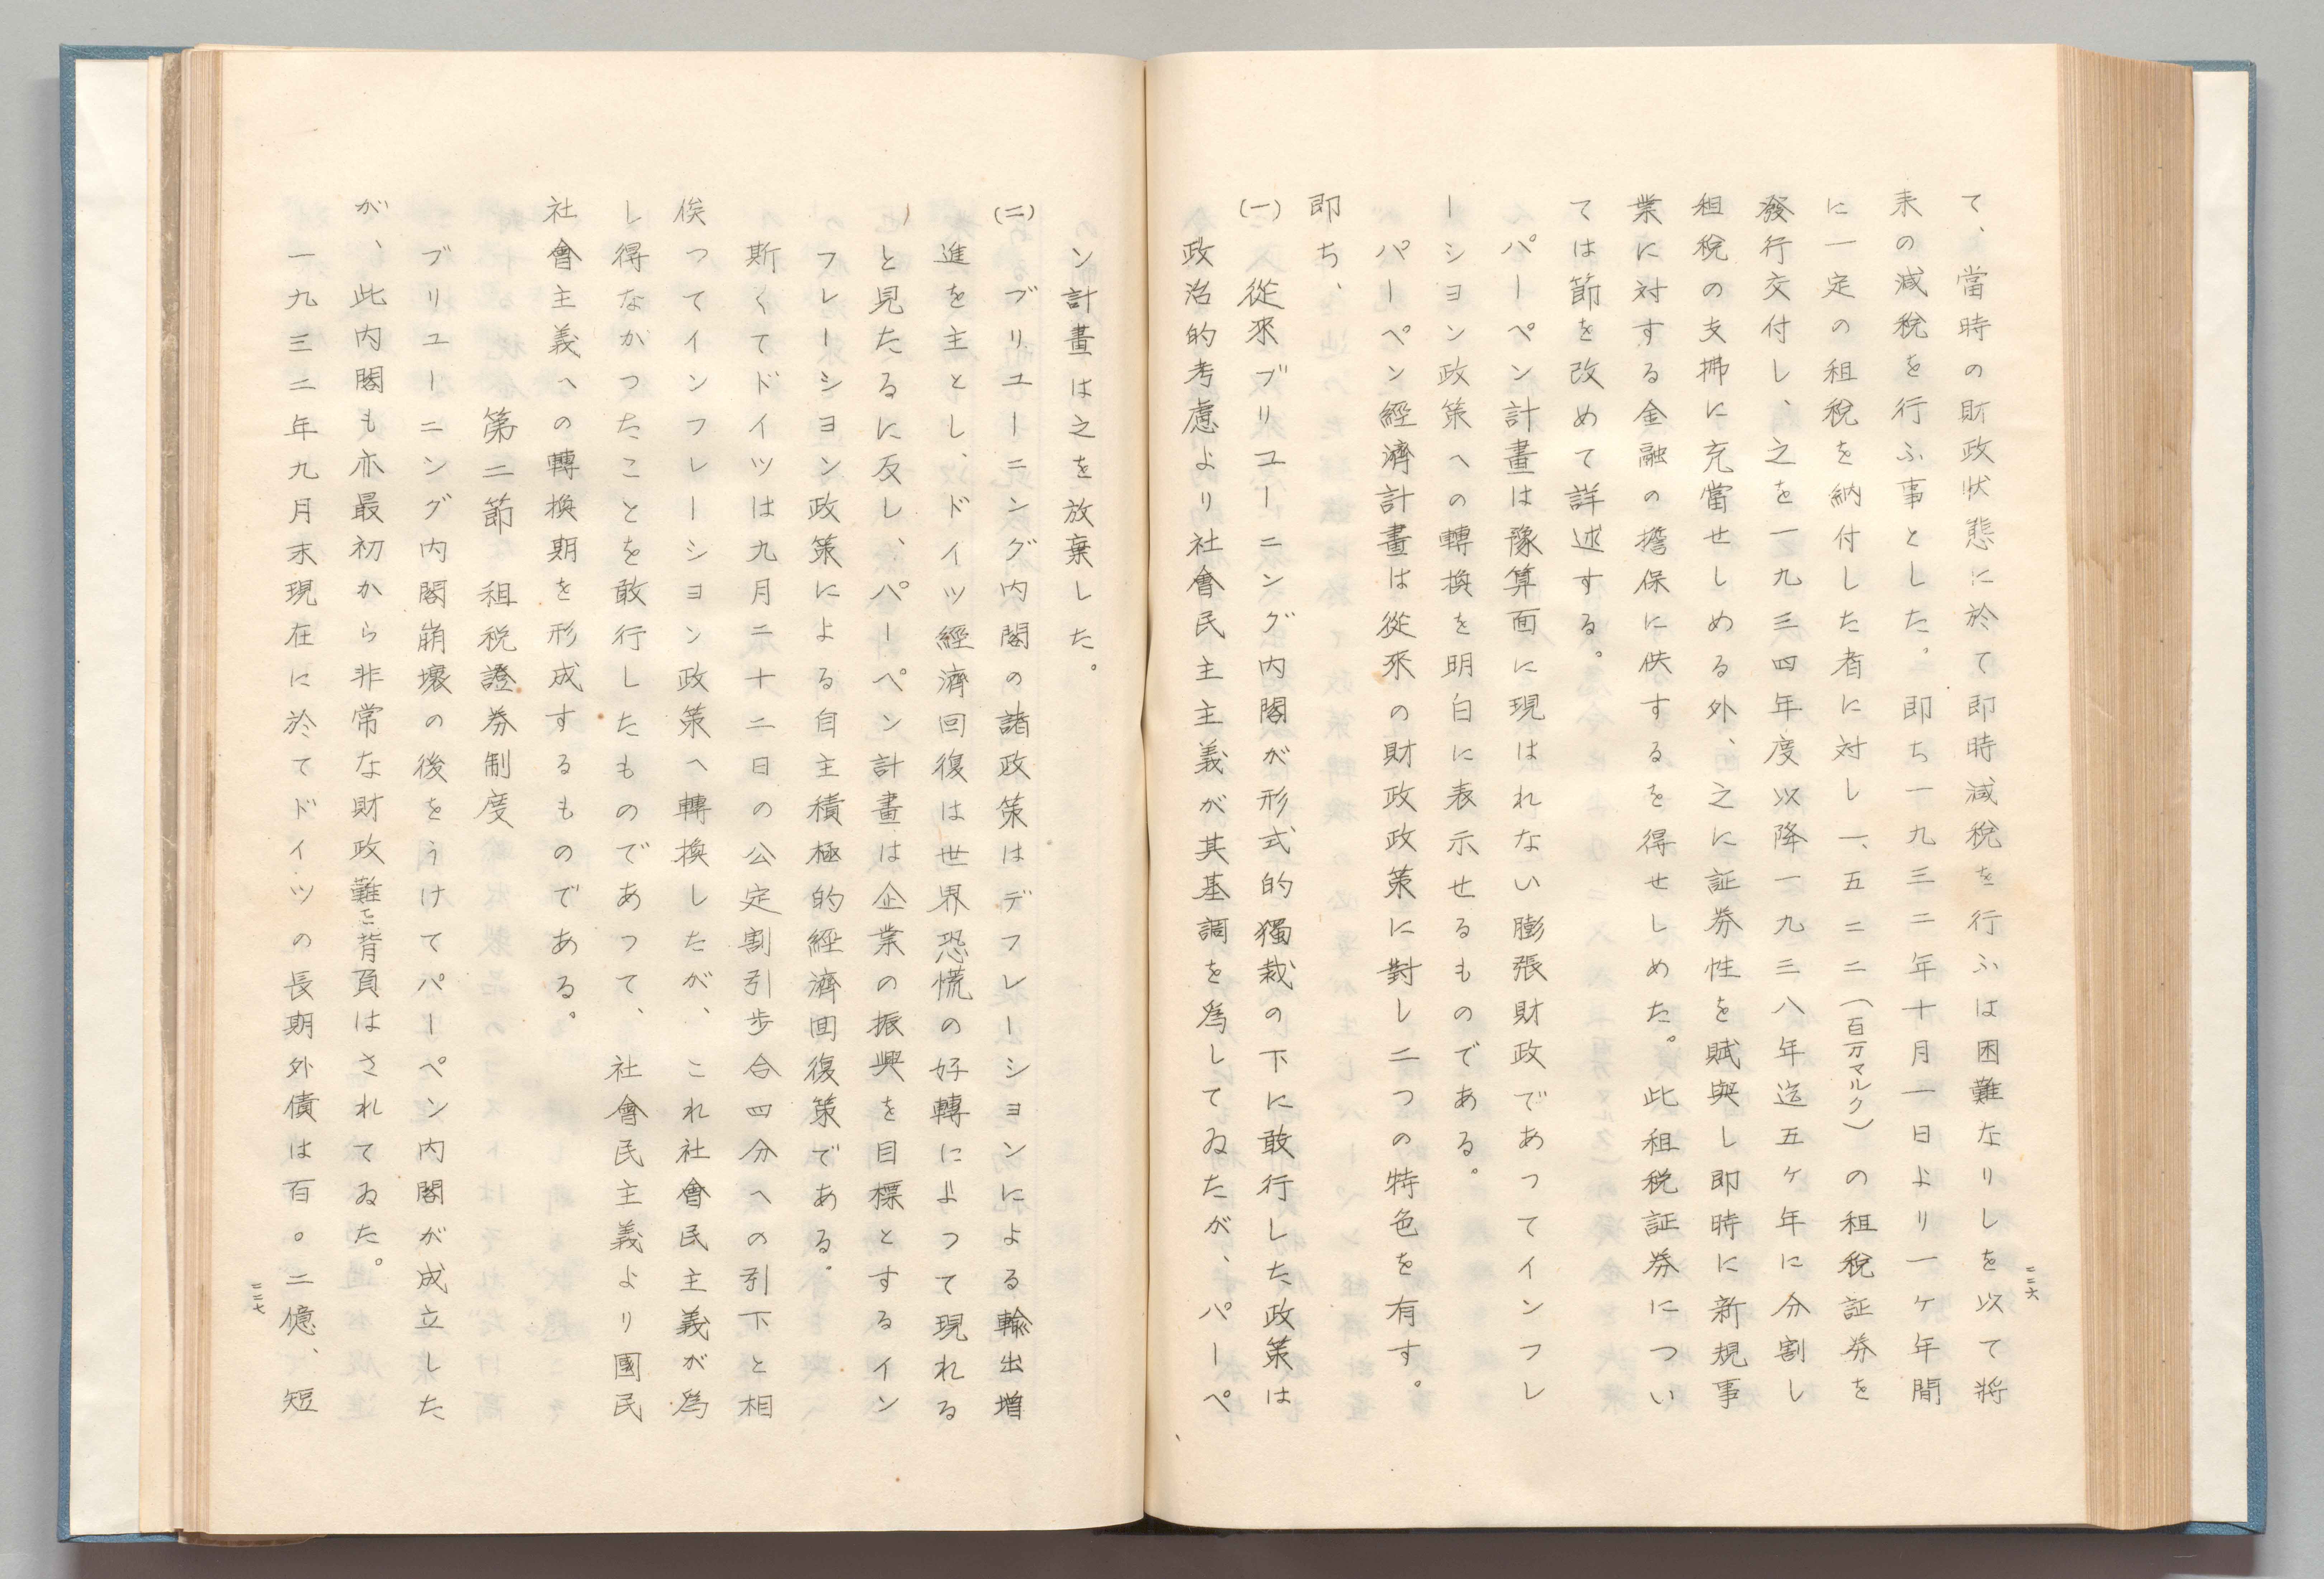 て、當時の財政状態に於て即時減税を行ふは困難なりしを以て將
来の減税を行ふ事とした。即ち一九三二年十月一日より一ヶ年間
に一定の租税を納付した者に対し一、五二二(百万マルク)の租税証券を
發行交付し、之を一九三四年度以降一九三八年迄五ヶ年に分割し
租税の支拂に充當せしめる外、之に証券性を賦與し即時に新規事
業に対する金融の擔保に供するを得せしめた。此租税証券につい
ては節を改めて詳述する。
パーペン計畫は豫算面に現はれない膨張財政であつてインフレ
ーション政策への轉換を明白に表示せるものである。
パーペン經濟計畫は從來の財政政策に對し二つの特色を有す。
即ち、
(一) 從來ブリユーニング内閣が形式的獨裁の下に敢行した政策は
政治的考慮より社會民主主義が其基調を爲してゐたが、パーペ
二二六
ン計畫は之を放棄した。
(二) ブリユーニング内閣の諸政策はデフレーションによる輸出増
進を主とし、ドイツ經濟回復は世界恐慌の好轉によつて現れる
と見たるに反し、パーペン計畫は企業の振興を目標とするイン
フレーション政策による自主積極的經濟回復策である。
斯くてドイツは九月二十二日の公定割引歩合四分への引下と相
俟つてインフレーション政策へ轉換したが、これ社會民主義が爲
し得なかつたことを敢行したものであつて、社會民主義より國民
社會主義への轉換期を形成するものである。
第二節 租税證券制度
ブリユーニング内閣崩壞の後をうけてパーペン内閣が成立した
が、此内閣も亦最初から非常な財政難に背負はされてゐた。
一九三二年九月末現在に於てドイツの長期外債は百〇二億、短
二二七